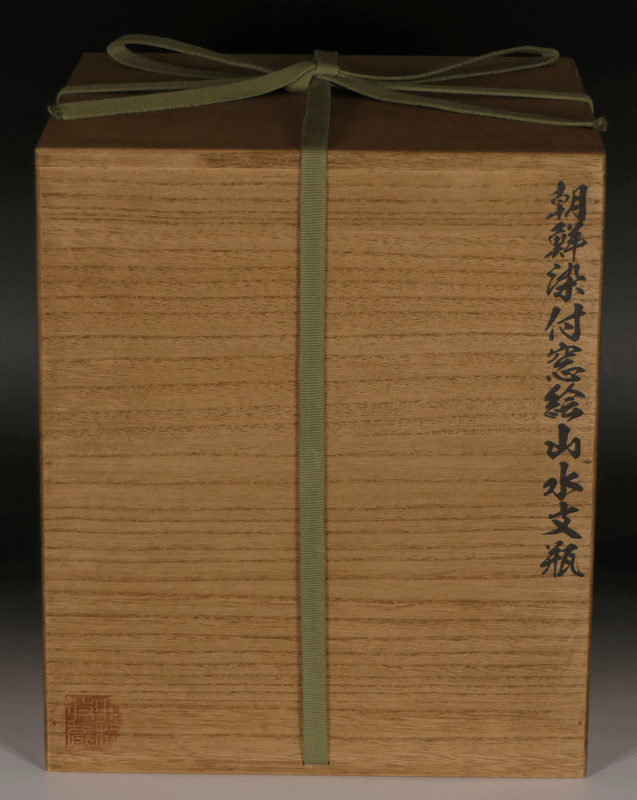 朝鮮染付窓絵山水文瓶